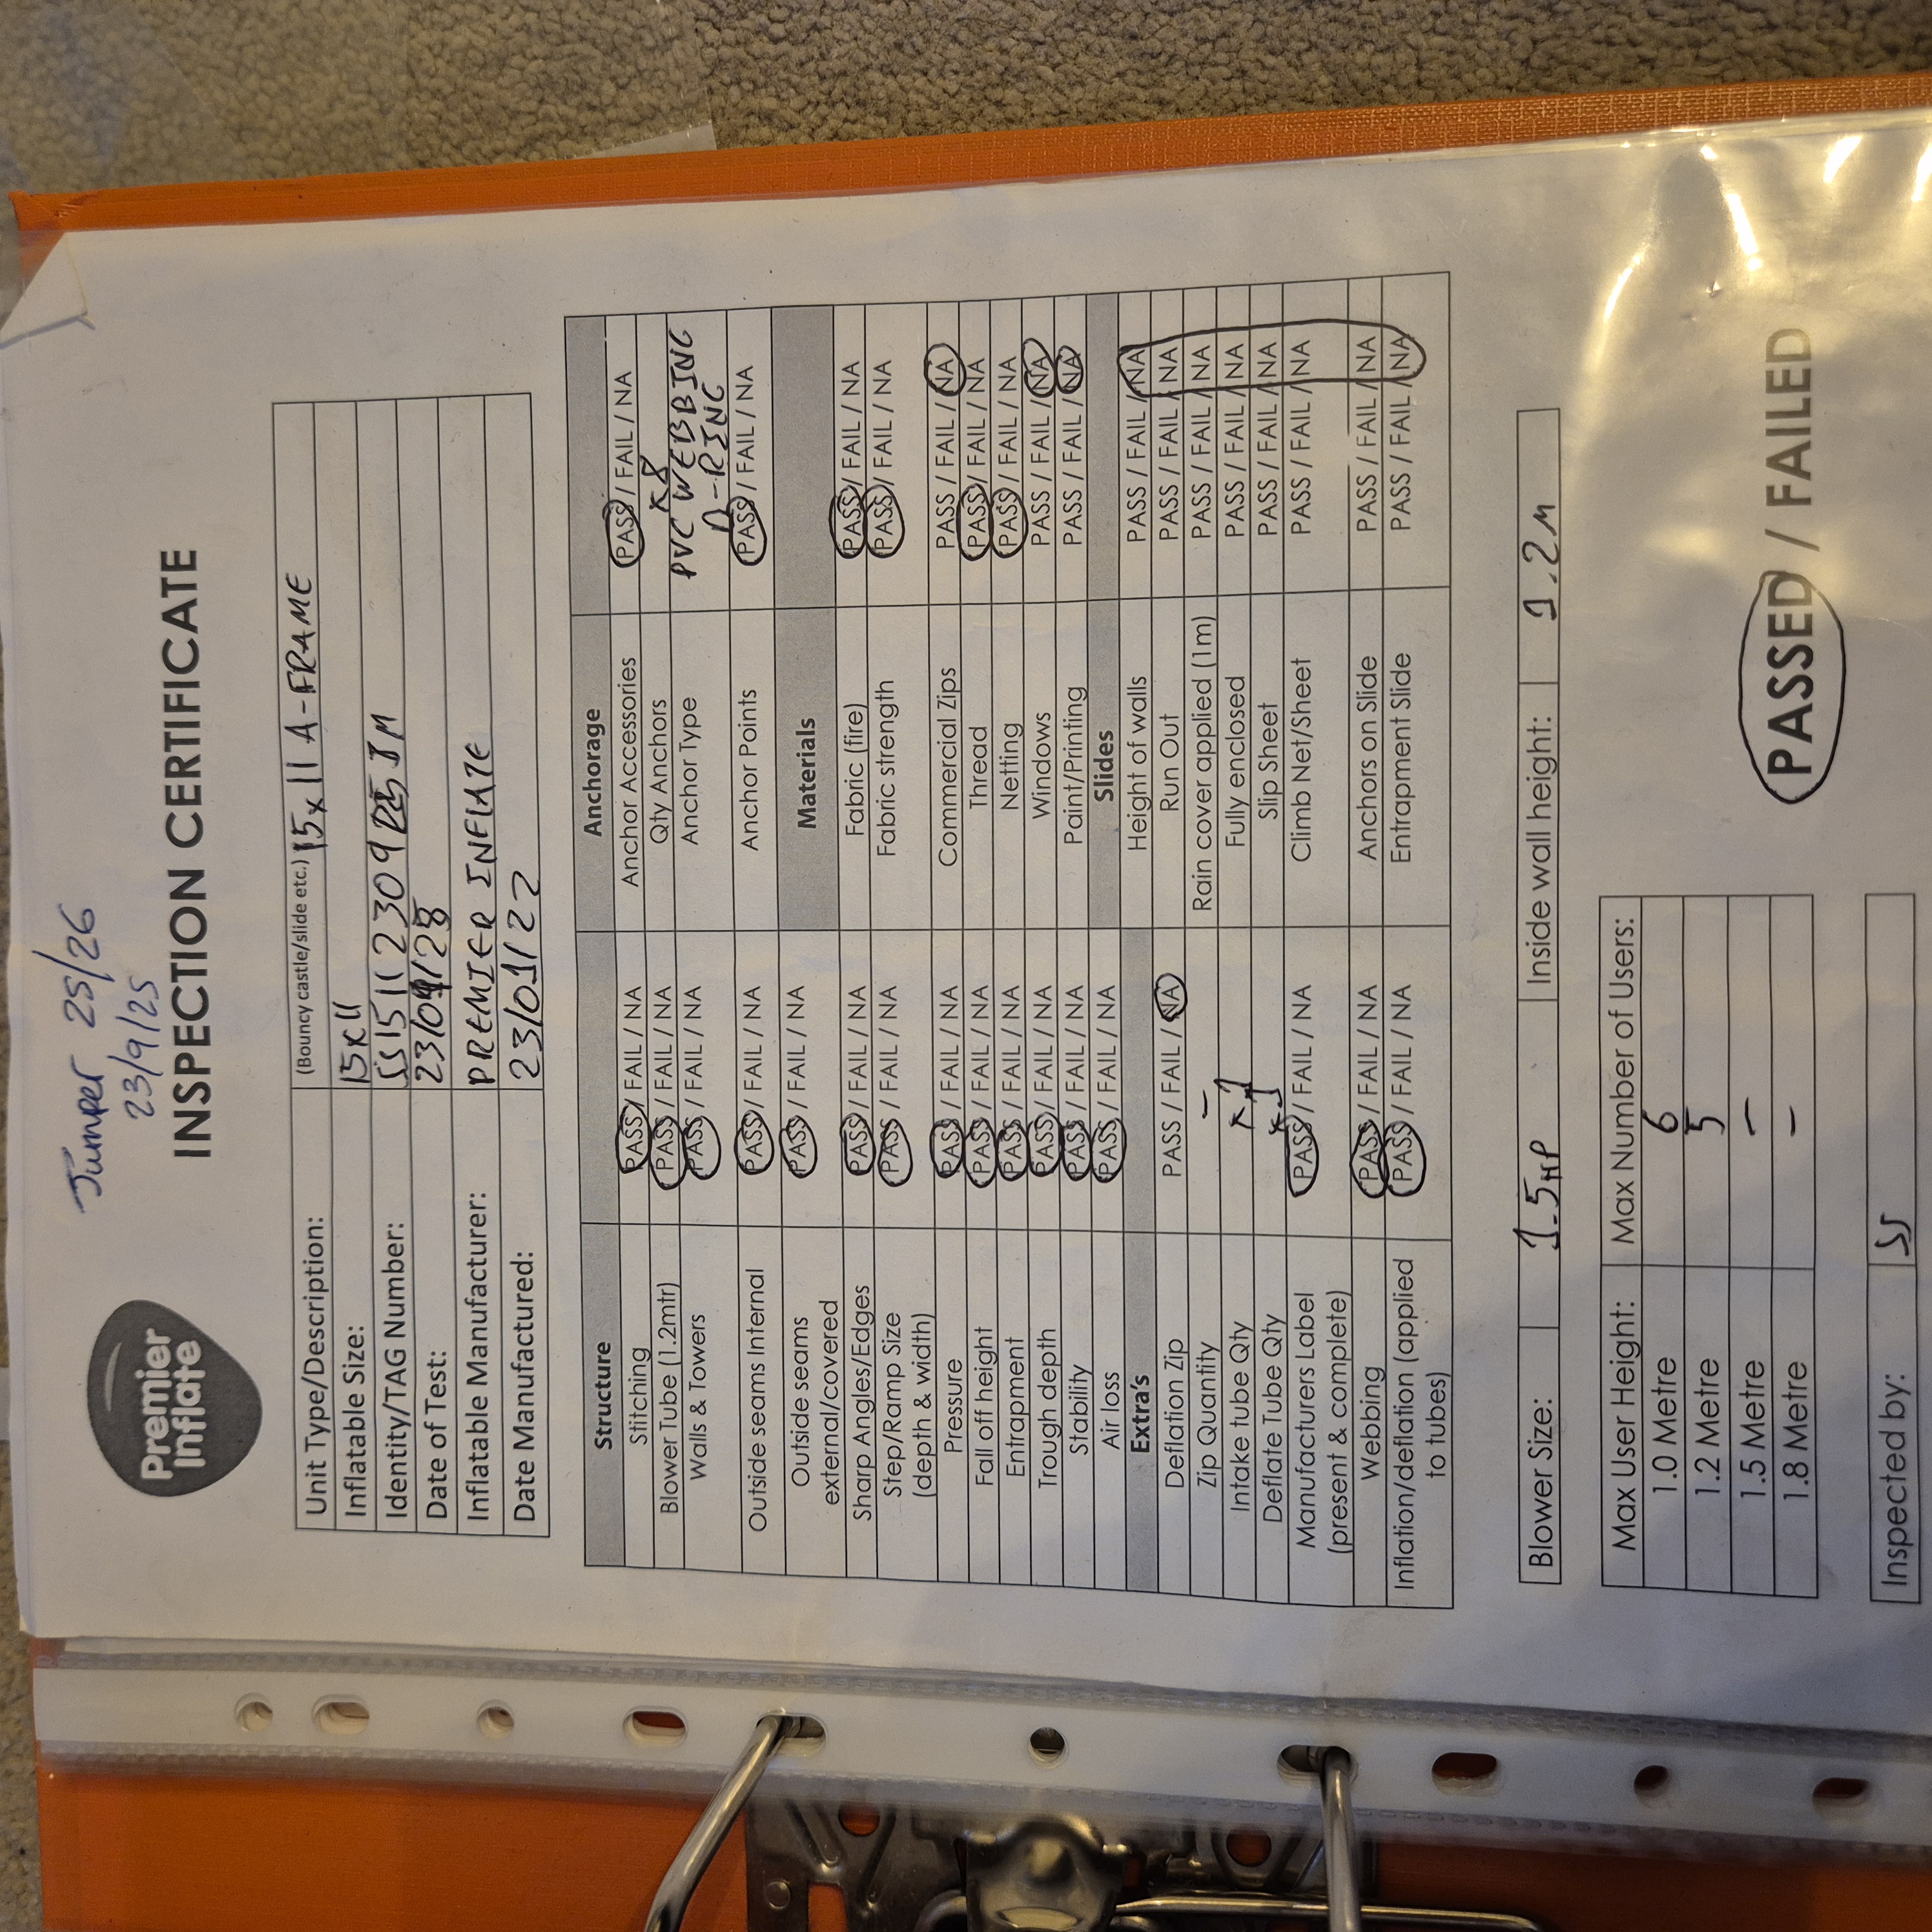 Jumper 25/26
23/9/25
Premier
Inflate
INSPECTION CERTIFICATE
Unit Type/Description: (Bouncy castle/slide etc.) 15x11 A-FRAME
Inflatable Size: 15x11
Identity/TAG Number: SS15112309 JM
Date of Test: 23/09/25
Inflatable Manufacturer: PREMIER INFLATE
Date Manufactured: 23/01/22
Structure Anchorage
Stitching PASS / FAIL / NA Anchor Accessories PASS / FAIL / NA
Blower Tube (1.2mtr) PASS / FAIL / NA Qty Anchors x8
Walls & Towers PASS / FAIL / NA Anchor Type PVC WEBBING
D-RING
Outside seams Internal PASS / FAIL / NA Anchor Points PASS / FAIL / NA
Outside seams PASS / FAIL / NA Materials
external/covered
Sharp Angles/Edges PASS / FAIL / NA Fabric (fire) PASS / FAIL / NA
Step/Ramp Size PASS / FAIL / NA Fabric strength PASS / FAIL / NA
(depth & width)
Pressure PASS / FAIL / NA Commercial Zips PASS / FAIL / NA
Fall off height PASS / FAIL / NA Thread PASS / FAIL / NA
Entrapment PASS / FAIL / NA Netting PASS / FAIL / NA
Trough depth PASS / FAIL / NA Windows PASS / FAIL / NA
Stability PASS / FAIL / NA Paint/Printing PASS / FAIL / NA
Air loss PASS / FAIL / NA Slides
Extra's Height of walls PASS / FAIL / NA
Deflation Zip PASS / FAIL / NA Run Out PASS / FAIL / NA
Zip Quantity – Rain cover applied (1m) PASS / FAIL / NA
Intake tube Qty x1 Fully enclosed PASS / FAIL / NA
Deflate Tube Qty x1 Slip Sheet PASS / FAIL / NA
Manufacturers Label PASS / FAIL / NA Climb Net/Sheet PASS / FAIL / NA
(present & complete)
Webbing PASS / FAIL / NA Anchors on Slide PASS / FAIL / NA
Inflation/deflation (applied PASS / FAIL / NA Entrapment Slide PASS / FAIL / NA
to tubes)
Blower Size: 1.5HP Inside wall height: 1.2M
Max User Height: Max Number of Users:
1.0 Metre 6
1.2 Metre 5
1.5 Metre –
1.8 Metre –
PASSED / FAILED
Inspected by: SS